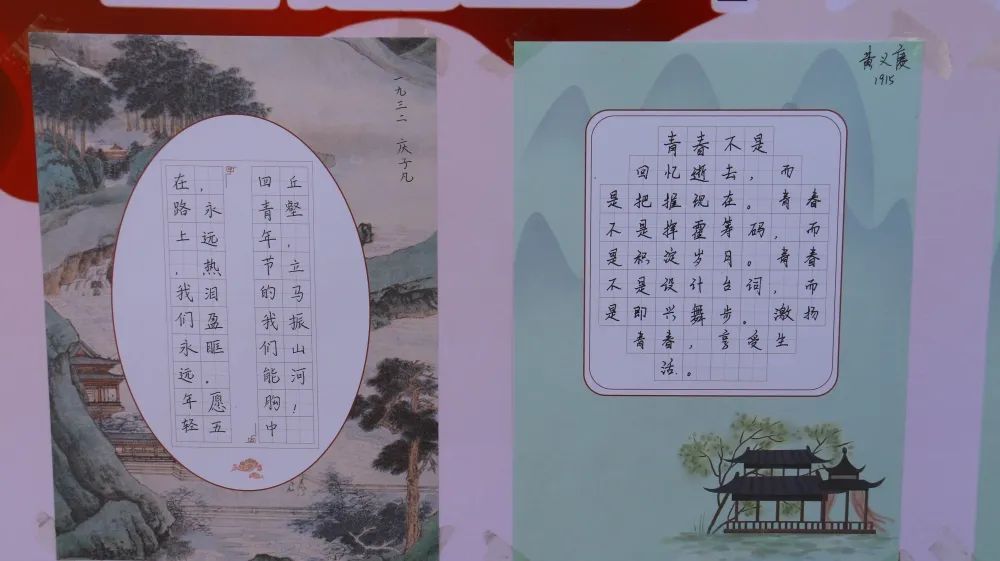 一九三二 庆子凡
在路上，我们永远年轻
，永远热泪盈眶。愿五
四青年节的我们能胸中
丘壑，立马振山河！
黄义
1915
青春不是
回忆逝去，而
是把握现在。青春
不是挥霍筹码，而
是积淀岁月。青春
不是设计台词，而
是即兴舞步。激扬
青春，享受生
活。